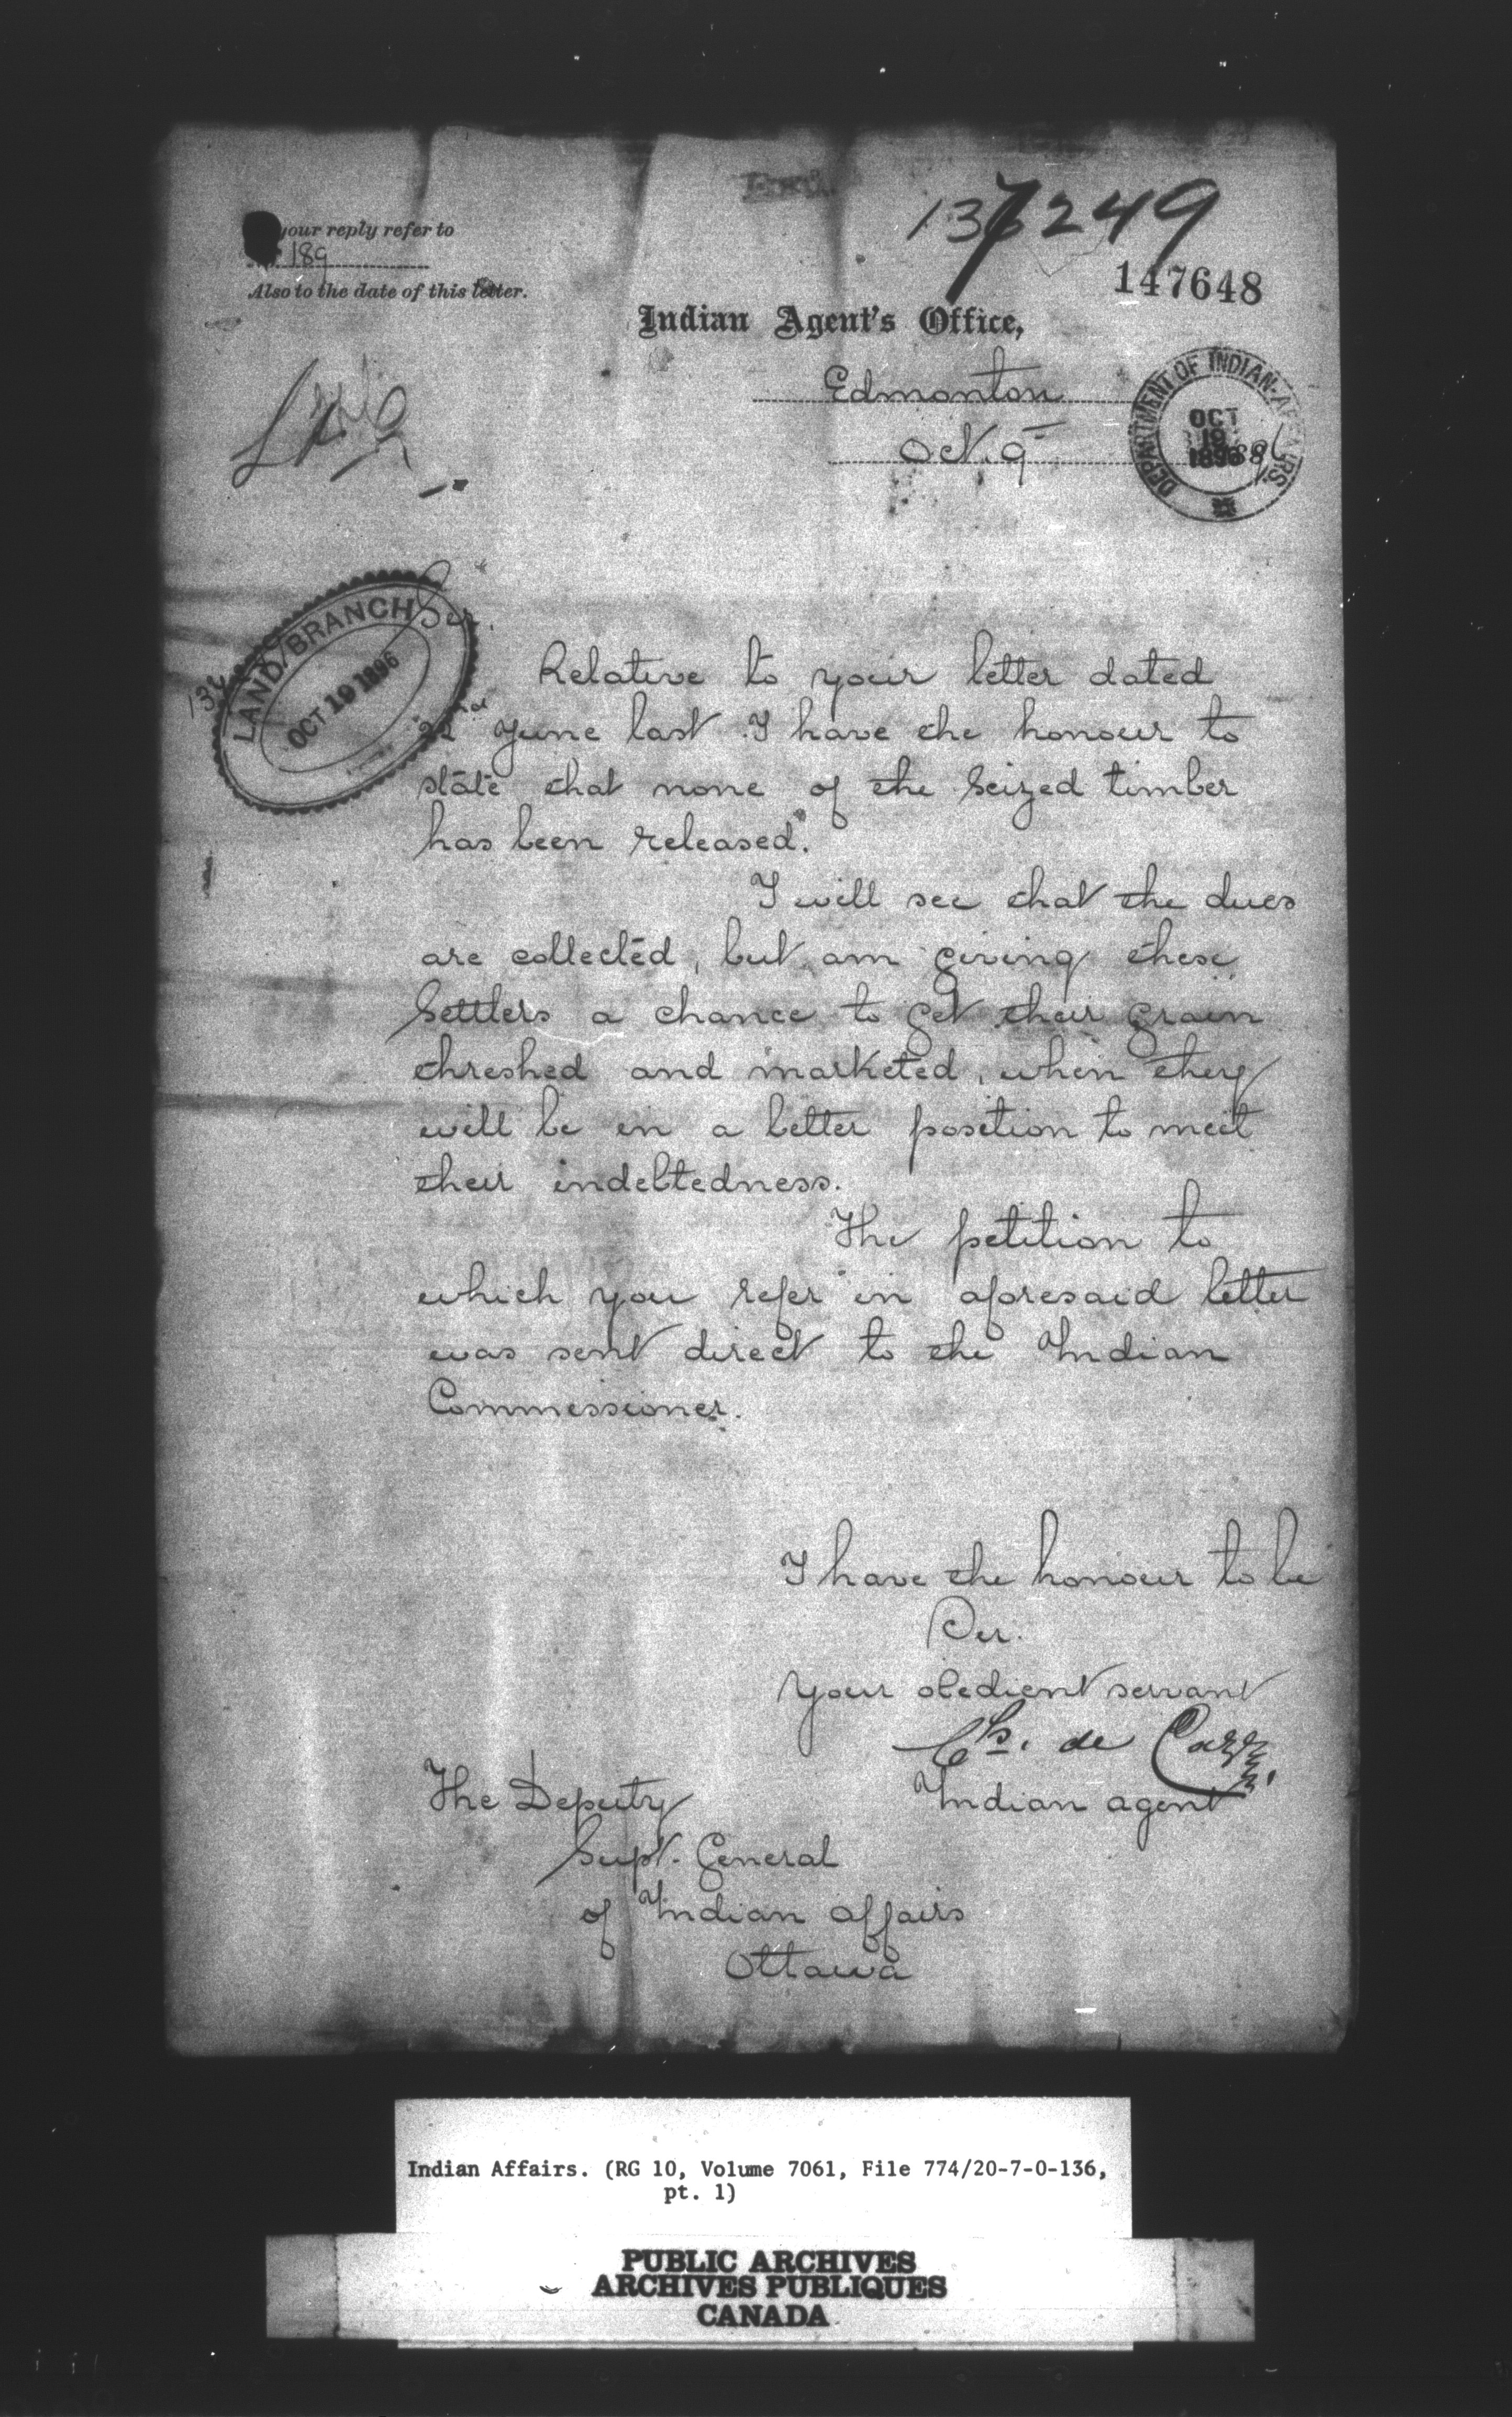 your reply refer to
189
Also to the date of this letter.
137249
147648
Indian Agent's Office,
Edmonton
Oct. 9
1896
DEPARTMENT OF INDIAN-AFFAIRS.
OCT
19
1896
LAND BRANCH
OCT 19 1896
Sir.
Relative to your letter dated
22nd June last I have the honour to
state that none of the Seized timber
has been released.
I will see that the dues
are collected, but am giving these
Settlers a chance to get their grain
threshed and marketed, when they
will be in a better position to meet
their indebtedness.
The petition to
which you refer in aforesaid letter
was sent direct to the Indian
Commissioner.
I have the honour to be
Sir.
Your obedient servant
Chs. de Cazes,
Indian agent
The Deputy
Supt. General
of Indian affairs
Ottawa
Indian Affairs. (RG 10, Volume 7061, File 774/20-7-0-136,
pt. 1)
PUBLIC ARCHIVES
ARCHIVES PUBLIQUES
CANADA